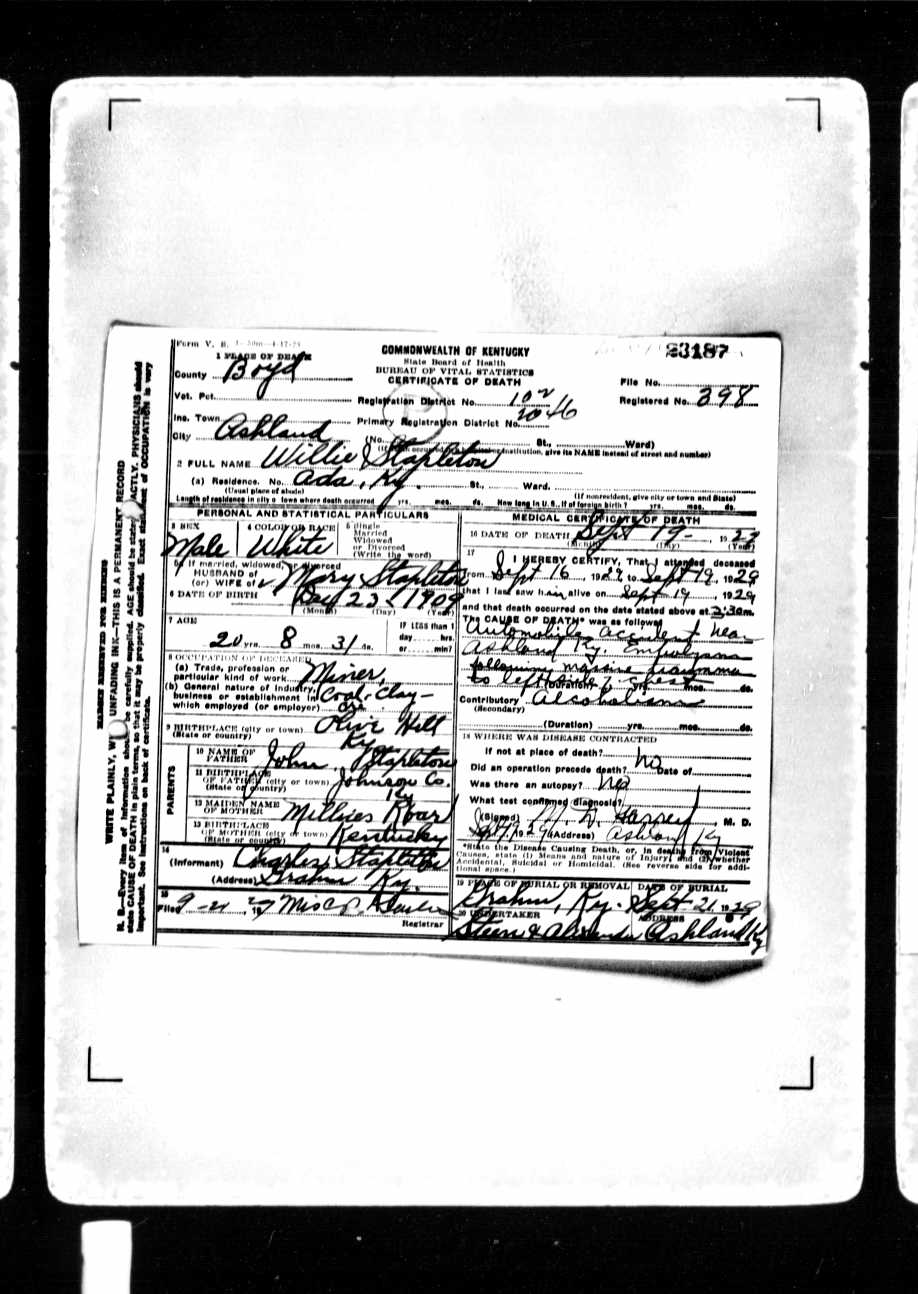 Form V. S.
23187
1 PLACE OF DEATH
COMMONWEALTH OF KENTUCKY
State Board of Health
BUREAU OF VITAL STATISTICS
CERTIFICATE OF DEATH
County Boyd
File No.
Vot. Pct.
Registration District No. 102
Registered No. 398
Inc. Town
Primary Registration District No. 2046
City Ashland
(No. St., Ward)
(If death occurred in a hospital or institution, give its NAME instead of street and number)
2 FULL NAME Willie Stapleton
(a) Residence. No. Ada, Ky. St., Ward.
(Usual place of abode) (If nonresident, give city or town and State)
Length of residence in city or town where death occurred yrs. mos. ds. How long in U. S., if of foreign birth? yrs. mos. ds.
PERSONAL AND STATISTICAL PARTICULARS
3 SEX
Male
4 COLOR OR RACE
White
5 Single
Married
Widowed
or Divorced
(Write the word)
5a If married, widowed, or divorced
HUSBAND of
(or) WIFE of Mary Stapleton
6 DATE OF BIRTH Dec 23 1909
(Month) (Day) (Year)
7 AGE
20 yrs. 8 mos. 31 ds.
IF LESS than 1
day hrs.
or min?
8 OCCUPATION OF DECEASED
(a) Trade, profession or
particular kind of work Miner,
(b) General nature of industry,
business or establishment in
which employed (or employer) Coal, Clay
9 BIRTHPLACE (city or town) Olive Hill
(State or country) Ky
PARENTS
10 NAME OF
FATHER John Stapleton
11 BIRTHPLACE
OF FATHER (city or town)
(State or country) Johnson Co. Ky
12 MAIDEN NAME
OF MOTHER Millies Roar
13 BIRTHPLACE
OF MOTHER (city or town)
(State or country) Kentucky
14
(Informant) Charles Stapleton
(Address) Grahn Ky.
15
Filed 9-21
Registrar
MEDICAL CERTIFICATE OF DEATH
16 DATE OF DEATH Sept 19 19
(Month) (Day) (Year)
17
I HEREBY CERTIFY, That I attended deceased
from Sept 16, 1929, to Sept 19, 1929
that I last saw him alive on Sept 19, 1929
and that death occurred on the date stated above at 3:30 m.
The CAUSE OF DEATH* was as follows:
Automobile accident near
Ashland Ky.
following massive
to left side of chest
(Duration) yrs. mos. ds.
Contributory Alcoholism
(Secondary)
(Duration) yrs. mos. ds.
18 WHERE WAS DISEASE CONTRACTED
If not at place of death?
Did an operation precede death? no Date of
Was there an autopsy? no
What test confirmed diagnosis?
(Signed) M. D.
1929 (Address) Ashland Ky
*State the Disease Causing Death, or, in deaths from Violent
Causes, state (1) Means and nature of Injury; and (2) whether
Accidental, Suicidal or Homicidal. (See reverse side for addi-
tional space.)
19 PLACE OF BURIAL OR REMOVAL DATE OF BURIAL
Grahn, Ky. Sept. 21, 1929
20 UNDERTAKER ADDRESS
Steen & Alexander Ashland Ky
MARGIN RESERVED FOR BINDING
WRITE PLAINLY, WITH UNFADING INK—THIS IS A PERMANENT RECORD
N. B.—Every item of information should be carefully supplied. AGE should be stated EXACTLY. PHYSICIANS should
state CAUSE OF DEATH in plain terms, so that it may be properly classified. Exact statement of OCCUPATION is very
important. See instructions on back of certificate.